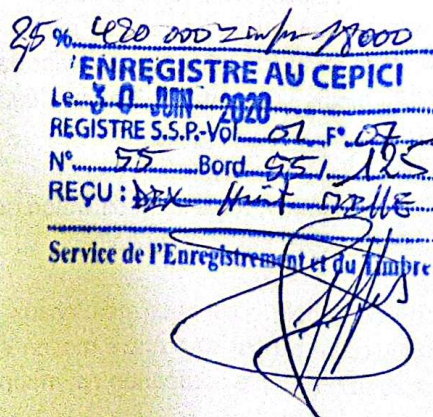 2,5 % 480 000 18000
ENREGISTRE AU CEPICI
Le 30 JUIN 2020
REGISTRE S.S.P.-Vol 01 F° 07
N° 55 Bord 551 125
REÇU : DIX Huit MILLE
Service de l'Enregistrement et du Timbre